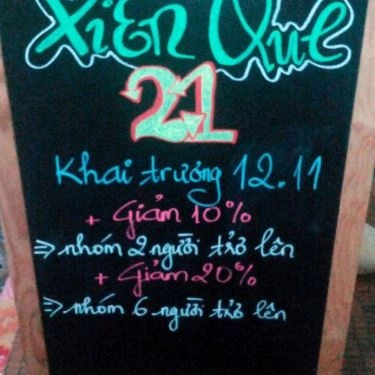 Xiên Que
21
Khai trương 12.11
+ Giảm 10%
⇒ nhóm 2 người trở lên
+ Giảm 20%
⇒ nhóm 6 người trở lên